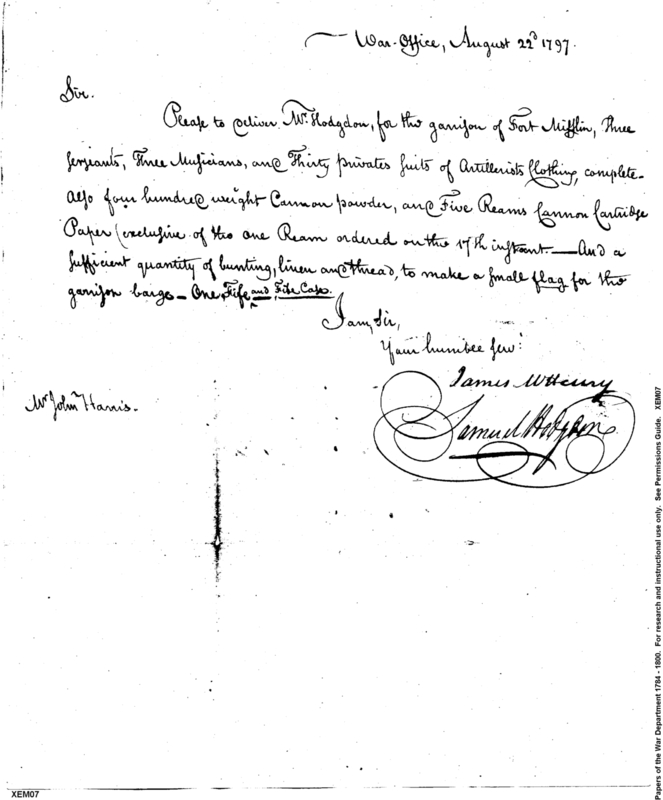 War-Office, August 22d 1797.
Sir.
Please to deliver Mr. Hodgdon, for the garrison of Fort Mifflin, Three
Serjeants, Three Musicians, and Thirty privates suits of Artillerists Clothing, complete-
Also four hundred weight Cannon powder, and Five Reams Cannon Cartridge
Paper (exclusive of the one Ream ordered on the 17th instant.—And a
sufficient quantity of bunting, linen and thread, to make a small flag for the
garrison barge — One Fife and Fife Case.
I am, Sir,
Your humble servt
James McHenry
Mr John Harris.
Samuel Hodgdon
XEM07
Papers of the War Department 1784 - 1800. For research and instructional use only. See Permissions Guide. XEM07